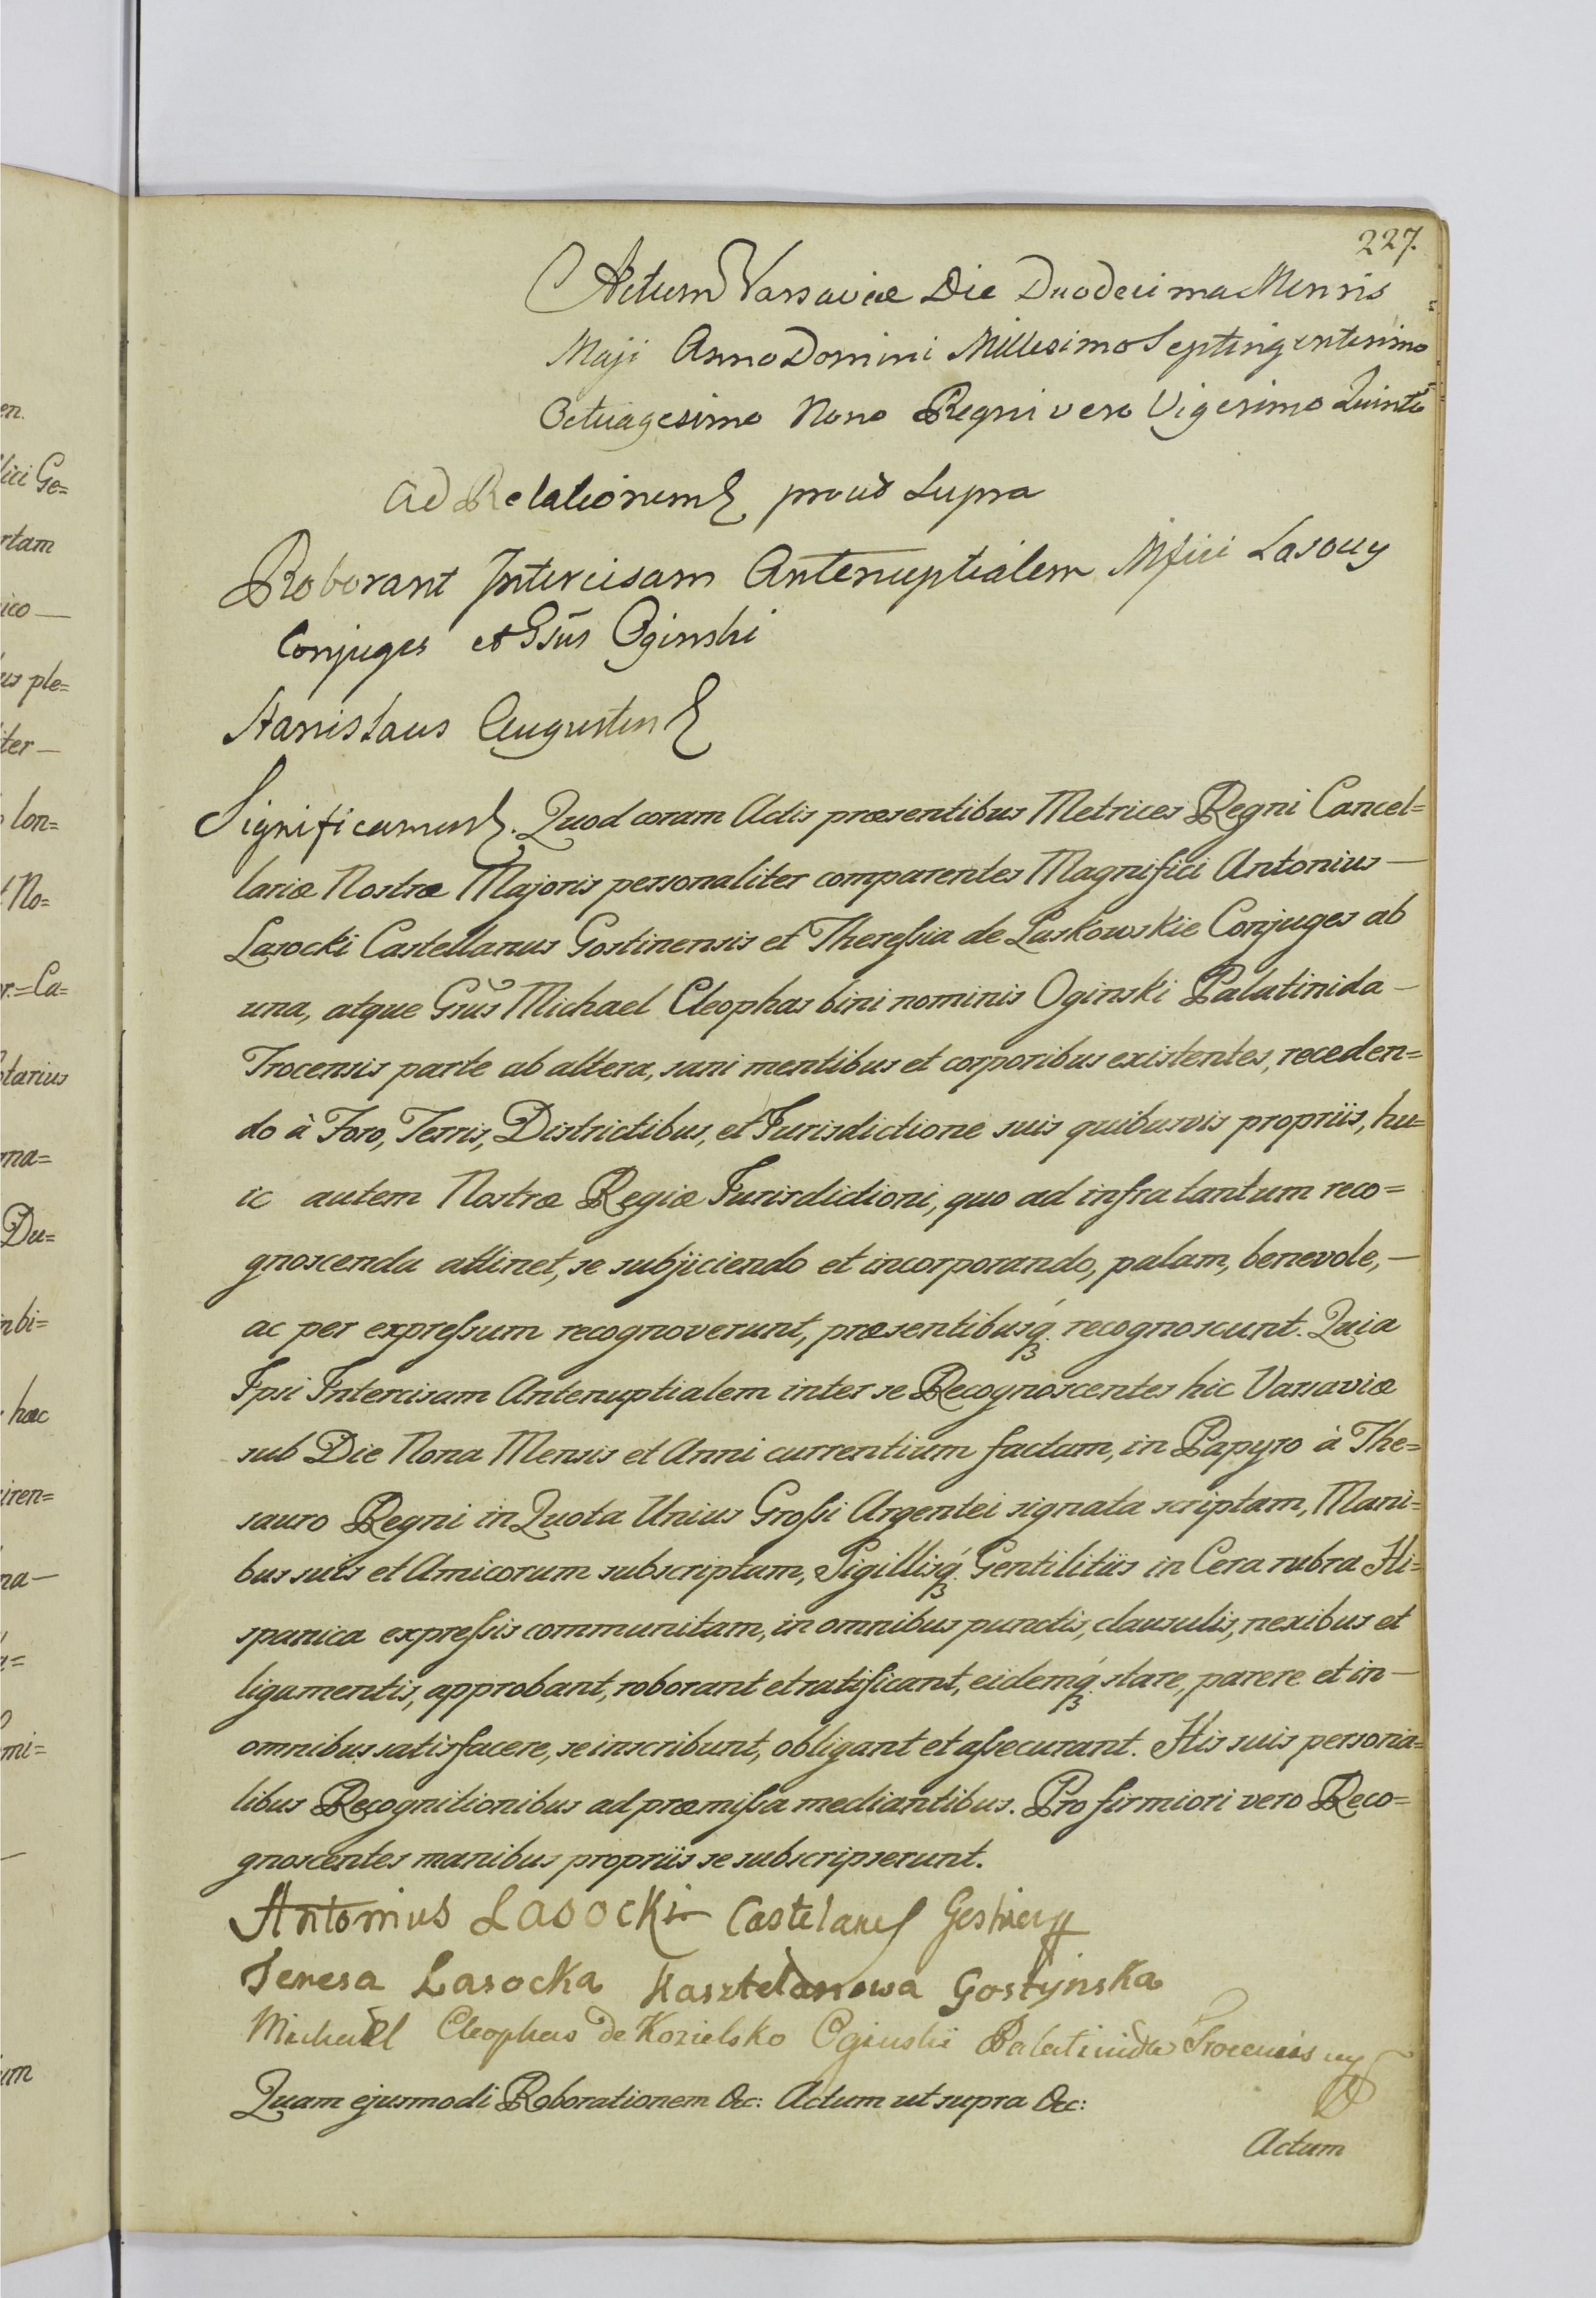 227.
Actum Varsaviæ Die Duodecima Mensis
Maji Anno Domini Millesimo Septingentesimo
Octuagesimo Nono Regni vero Vigesimo Quinto
Ad Relationem prout Supra
Roborant Intercisam Antenuptialem Mfici Lasoccy
Conjuges et Gsūs Oginski
Stanislaus Augustus
Significamus. Quod coram Actis præsentibus Metrices Regni Cancel=
lariæ Nostræ Majoris personaliter comparentes Magnifici Antonius —
Lasocki Castellanus Gostinensis et Theressia de Luskowskie Conjuges ab
una, atque Gnūs Michael Cleophas bini nominis Oginski Palatinida —
Trocensis parte ab altera, sani mentibus et corporibus existentes, receden=
do à Foro, Terris, Districtibus, et Jurisdictione suis quibusvis propriis, hu=
ic autem Nostræ Regiæ Jurisdictioni, quo ad infra tantum reco=
gnoscenda attinet, se subjiciendo et incorporando, palam, benevole, —
ac per expressum recognoverunt, præsentibusq́. recognoscunt. Quia
Ipsi Intercisam Antenuptialem inter se Recognoscentes hic Varsaviæ
sub Die Nona Mensis et Anni currentium factam, in Papyro à The=
sauro Regni in Quota Unius Grossi Argentei signata scriptam, Mani=
bus suis et Amicorum subscriptam, Sigillisq́. Gentilitiis in Cera rubra Hi=
spanica expressis communitam, in omnibus punctis, clausulis, nexibus et
ligamentis, approbant, roborant et ratificant, eidemq́. stare, parere et in —
omnibus satisfacere, se inscribunt, obligant et assecurant. His suis persona=
libus Recognitionibus ad præmissa mediantibus. Pro firmiori vero Reco=
gnoscentes manibus propriis se subscripserunt.
Antonius Lasocki
Teresa Lasocka Kasztelanowa Gostynska
Michaël Cleophas de Kozielsko Oginski Palatinida Trocensis
Quam ejusmodi Roborationem &c: Actum ut supra &c:
Actum